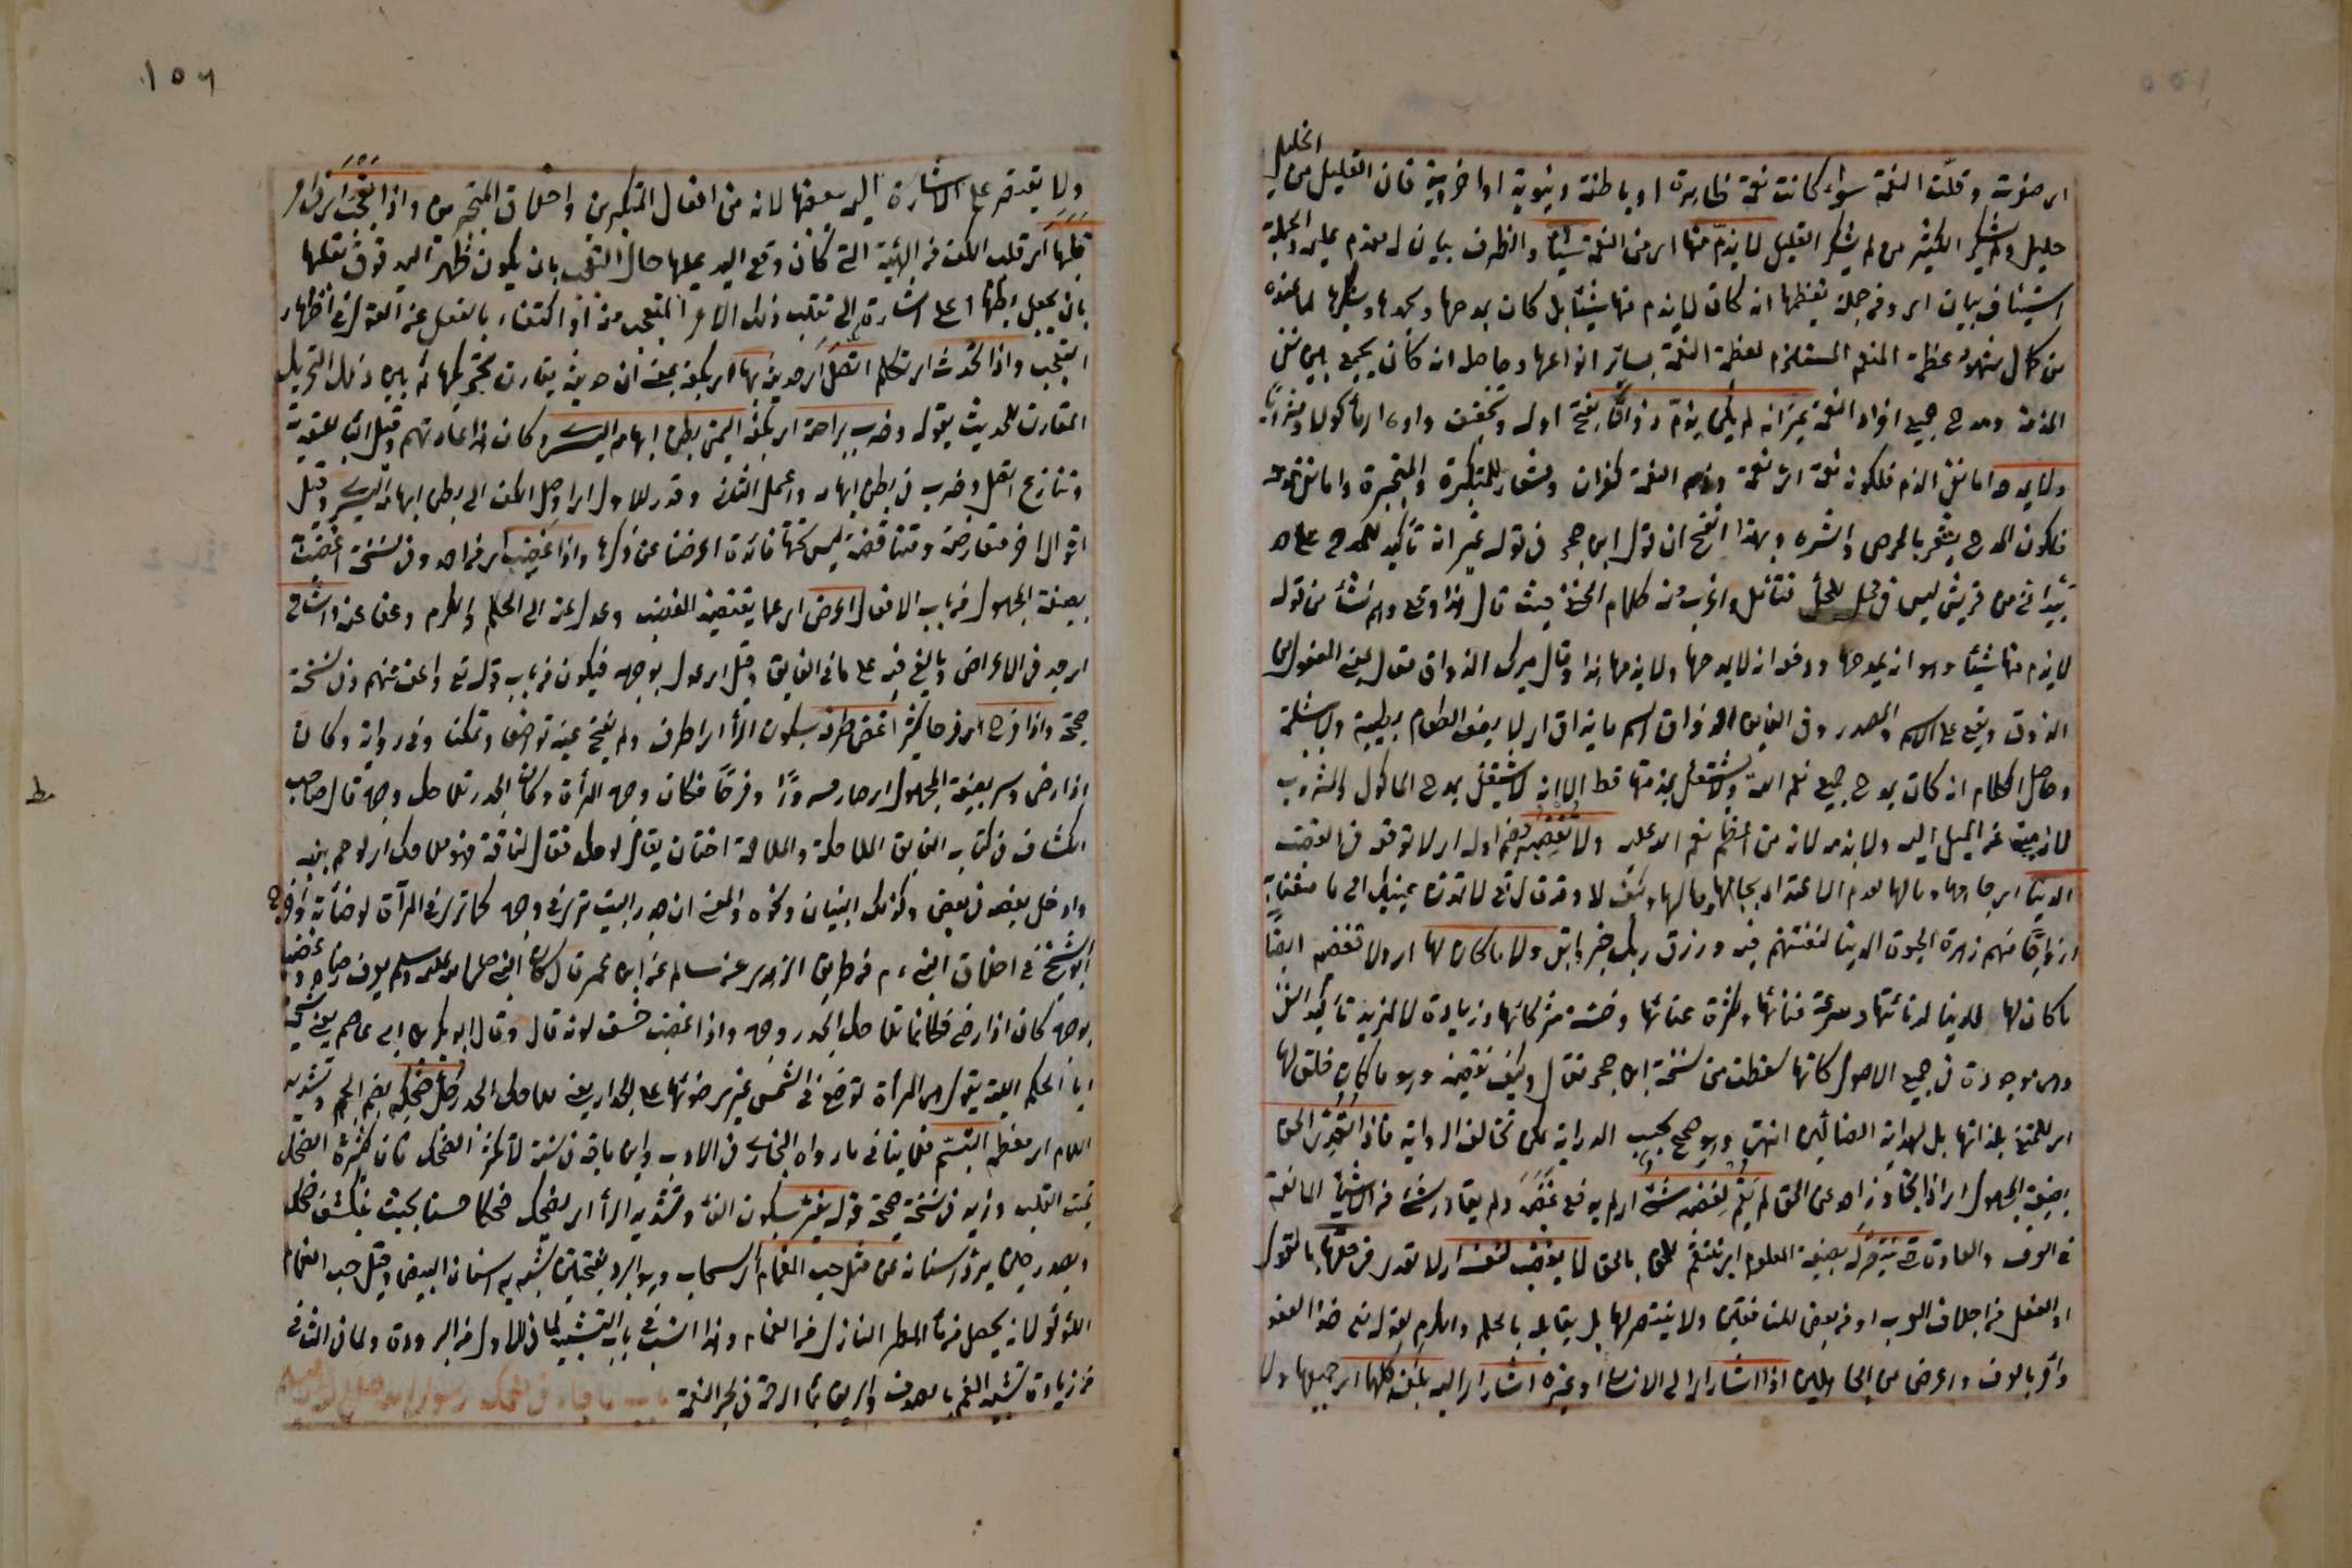 ١٥٥
الجليل
اى صغرت وقلت النعمة سواء كانت نعمة ظاهرة او باطنة دنيوية او اخروية فان القليل من
جليل ولم يشكر الكثير من لم يشكر القليل لا يذم منها اى من النعمة شيئا والظرف بيان له مقدم عليه والجملة
استيناف بيان اى ومن جملة تعظيمها انه كان لا يذم منها شيئا بل كان يمدحها ويحمدها ويشكرها لما عنده
من كمال شهود عظمة المنعم المستلزم لعظمة النعمة بسائر انواعها وحاصله انه كان يجمع بين نفى
المذمة ومدح جميع افراد النعمة غير انه لم يكن يذم ذواقا بفتح اوله وتخفيف واوه اى ماكولا ومشروبا
ولا يمدحه اما نفى الذم فلكونه نعمة اى نعمة وذم النعمة كفران وشعار للمتكبرة والمتجبرة واما نفى مدحه
فلكون المدح يشعر بالحرص والشره وبهذا اتضح ان قول ابن حجر فى قوله غير انه تأكيد للمدح على حد
بيد انى من قريش ليس فى محله للمحل فتأمل واغرب منه كلام الحنفى حيث قال هذا دفع وهم نشأ من قوله
لا يذم منها شيئا وهو انه يمدحها ودفعه انه لا يمدحها ولا يذمها هذا وقال ميرك الذواق فعال بمعنى المفعول من
الذوق ويقع على الاسم والمصدر وفى الفايق الذواق اسم ما يذاق اى لا يصف الطعام بطيبة ولا بشاعة
وحاصل الكلام انه كان يمدح جميع نعم الله ولا يشتغل بمذمتها قط الا انه لا يشتغل بمدح الماكول والمشروب
لانه ينبئ عن الميل اليه ولا يذمه لانه من اعظم نعم الله عليه ولا تغضبه بضم اوله اى لا توقعه فى الغضب
الدنيا اى جاهها ومالها لعدم الاعتداد بجاهها ومالها وكيف لا وقد قال تعالى لا تمدن عينيك الى ما متعنا به
ازواجا منهم زهرة الحيوة الدنيا لنفتنهم فيه ورزق ربك خير وابقى ولا ما كان لها اى ولا تغضبه ايضا
ما كان لها للدنيا لدنائتها وسرعة فنائها وكثرة عنائها وخسة شركائها وزيادة لا لمزيد تأكيد النفى
وهى موجودة فى جميع الاصول كانها سقطت من نسخة ابن حجر فقال وكيف تغضبه وهو ما كان خلق لها
اى للتمتع بلذاتها بل لهداية الضالين انتهى وهو صحيح بحسب الدراية لكن تخالف الرواية فاذا تعدى الحق
بصيغة المجهول اى اذا تجاوز احد عن الحق لم يقم لغضبه شئ اى لم يدفع غضبه ولم يقاومه شئ من الاشياء المانعة
فى العرف والعادة حتى ينتصر له بصيغة المعلوم اى ينتقم للحق بالحق لا يغضب لنفسه اى لا تعدى فى حقها بالقول
او الفعل من اجلاف العرب او من بعض المنافقين ولا ينتصر لها بل يقابله بالحلم والكرم لقوله تعالى خذ العفو
وأمر بالعرف واعرض عن الجاهلين اذا اشار اى الى الانسان او غيره اشار اى اليه بكفه كلها اى جميعها ولا
١٥٦
ولا يقتصر على الاشارة اليه ببعضها لانه من افعال المتكبرين واخلاق المتجبرين واذا تعجب اى من امر
قلبها اى قلب الكف من الهيئة التى كان وقع اليه عليها حال التعجب بان يكون ظهر اليه فوق بقلبها
بان يجعل بطنها اعلى اشارة الى تقلب ذلك الامر المتعجب منه او اكتفاء بالفعل عن القول فى اظهار
التعجب واذا تحدث اى تكلم اتصل اى حديثه بها اى بكفه بمعنى ان حديثه يقارن تحريكها ثم بين ذلك التحريك
المقارن للحديث بقوله وضرب براحته اى بكفه اليمنى بطن ابهامه اليسرى وكان هذا عادتهم وقيل الباء للتعدية
وتنازع اتصل وضرب فى بطن ابهامه واعمل الثانى وقدر للاول اى اوصل الكف الى بطن ابهامه اليسرى وقيل
اقوال اخر متعارضة ومتناقضة ليس تحتها فائدة اعرضنا عن ذكرها واذا غضب اى من احد وفى نسخة اغضب
بصيغة المجهول من باب الافعال اعرض اى عما يقتضيه الغضب وعدل عنه الى الحلم والكرم وعفى عنه واشاح
اى جد فى الاعراض وبالغ فيه على ما فى الفايق وقيل اى عدل بوجهه فيكون من باب قوله تعالى واعرض عنهم وفى نسخة
صحيحة واذا فرح اى فرحا كثيرا غض طرفه بسكون الراء اى اطرق ولم يفتح عينه تواضعا وتمكنا وفى رواية وكان
اذا رضى وسر بصيغة المجهول اى صار مسرورا وفرحا فكان وجهه المرآة وكان الجدر تلاحك وجهه قال صاحب
الكشاف فى كتابه الفايق الملاحكة والملاحمة اختان يقال لوحك فقار الناقة فهو ملاحك اى لوحم بينه
وادخل بعضه فى بعض وكذلك البنيان ونحوه والمعنى ان جدر البيت ترى فى وجهه كما ترى فى المرآة لوضائته اخرج
ابو الشيخ فى اخلاق النبى م من طريق الزهرى عن سالم عن ابن عمر قال كان النبى صلى الله عليه وسلم يعرف رضاه وغضبه
بوجهه كان اذا رضى فكانما تلاحك الجدر وجهه واذا غضب خسف لونه قال وقال ابو بكر بن ابى عاصم يعنى شيخه
ابا الحكم الليثى يقول هى المرآة توضع فى الشمس فيرى ضوئها على الجدار يعنى تلاحك الجدر جل ضحكه بضم الجيم وتشديد
اللام اى معظمه التبسم فلا ينافى ما رواه البخارى فى الادب وابن ماجة فى سننه لا تكثر الضحك فان كثرة الضحك
تميت القلب وزيد فى نسخة صحيحة قوله يفتر بسكون الفاء وتشديد الراء اى يضحك ضحكا حسنا بحيث ينكشف ضحكه
ويصدر حين يبدو اسنانه عن مثل حب الغمام اى السحاب وهو البرد بفتحتين شبه به اسنانه البيض وقيل حب الغمام
اللؤلؤ لانه يحصل من ماء المطر النازل من الغمام وهذا انسب فى باب التشبيه لما فى الاول من البرودة ولما فى الثانى
من زيادة تشبيه الفم بالصدف والريق بماء الرحمة فى بحر النعمة باب ما جاء فى ضحك رسول الله صلى الله عليه